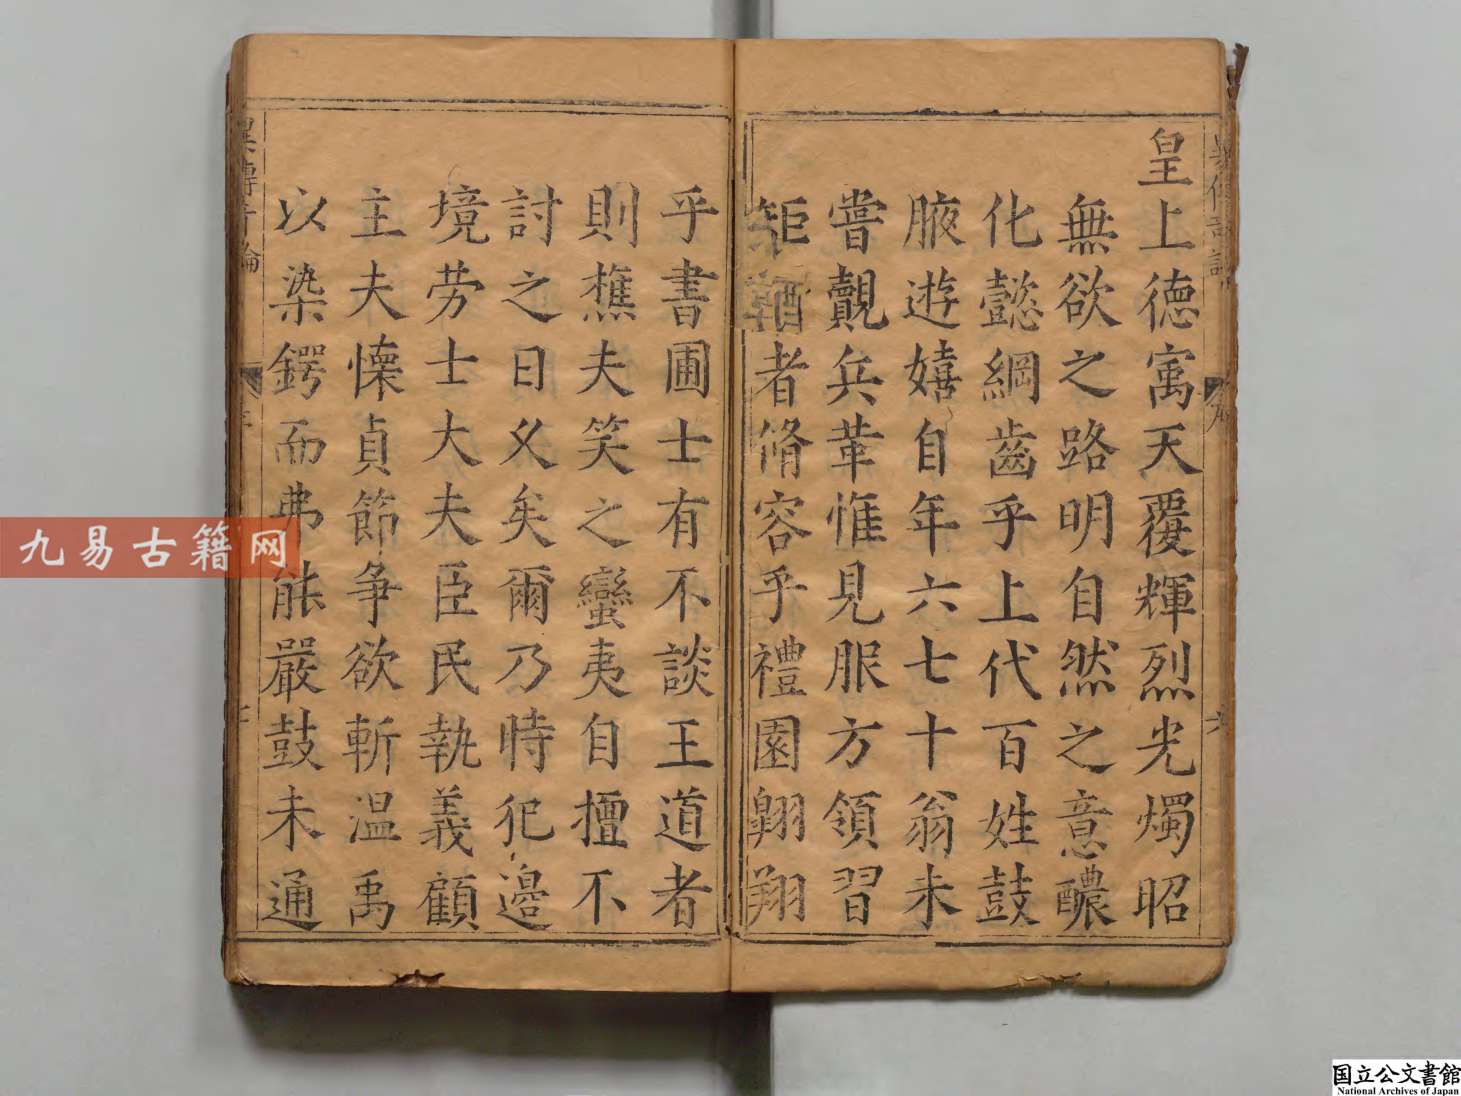 皇上德寓天覆輝烈光燭昭
無欲之路明自然之意醲
化懿綱齒乎上代百姓鼓
腋遊嬉自年六七十翁未
嘗覿兵革惟見服方領習
矩者脩容乎禮園翱翔
乎書圃士有不談王道者
則樵夫笑之蠻夷自擅不
討之日久矣爾乃時犯邊
境勞士大夫臣民執義顧
主夫懍貞節爭欲斬溫禺
以染鍔而弗能嚴鼓未通
九易古籍网
国立公文書館
National Archives of Japan